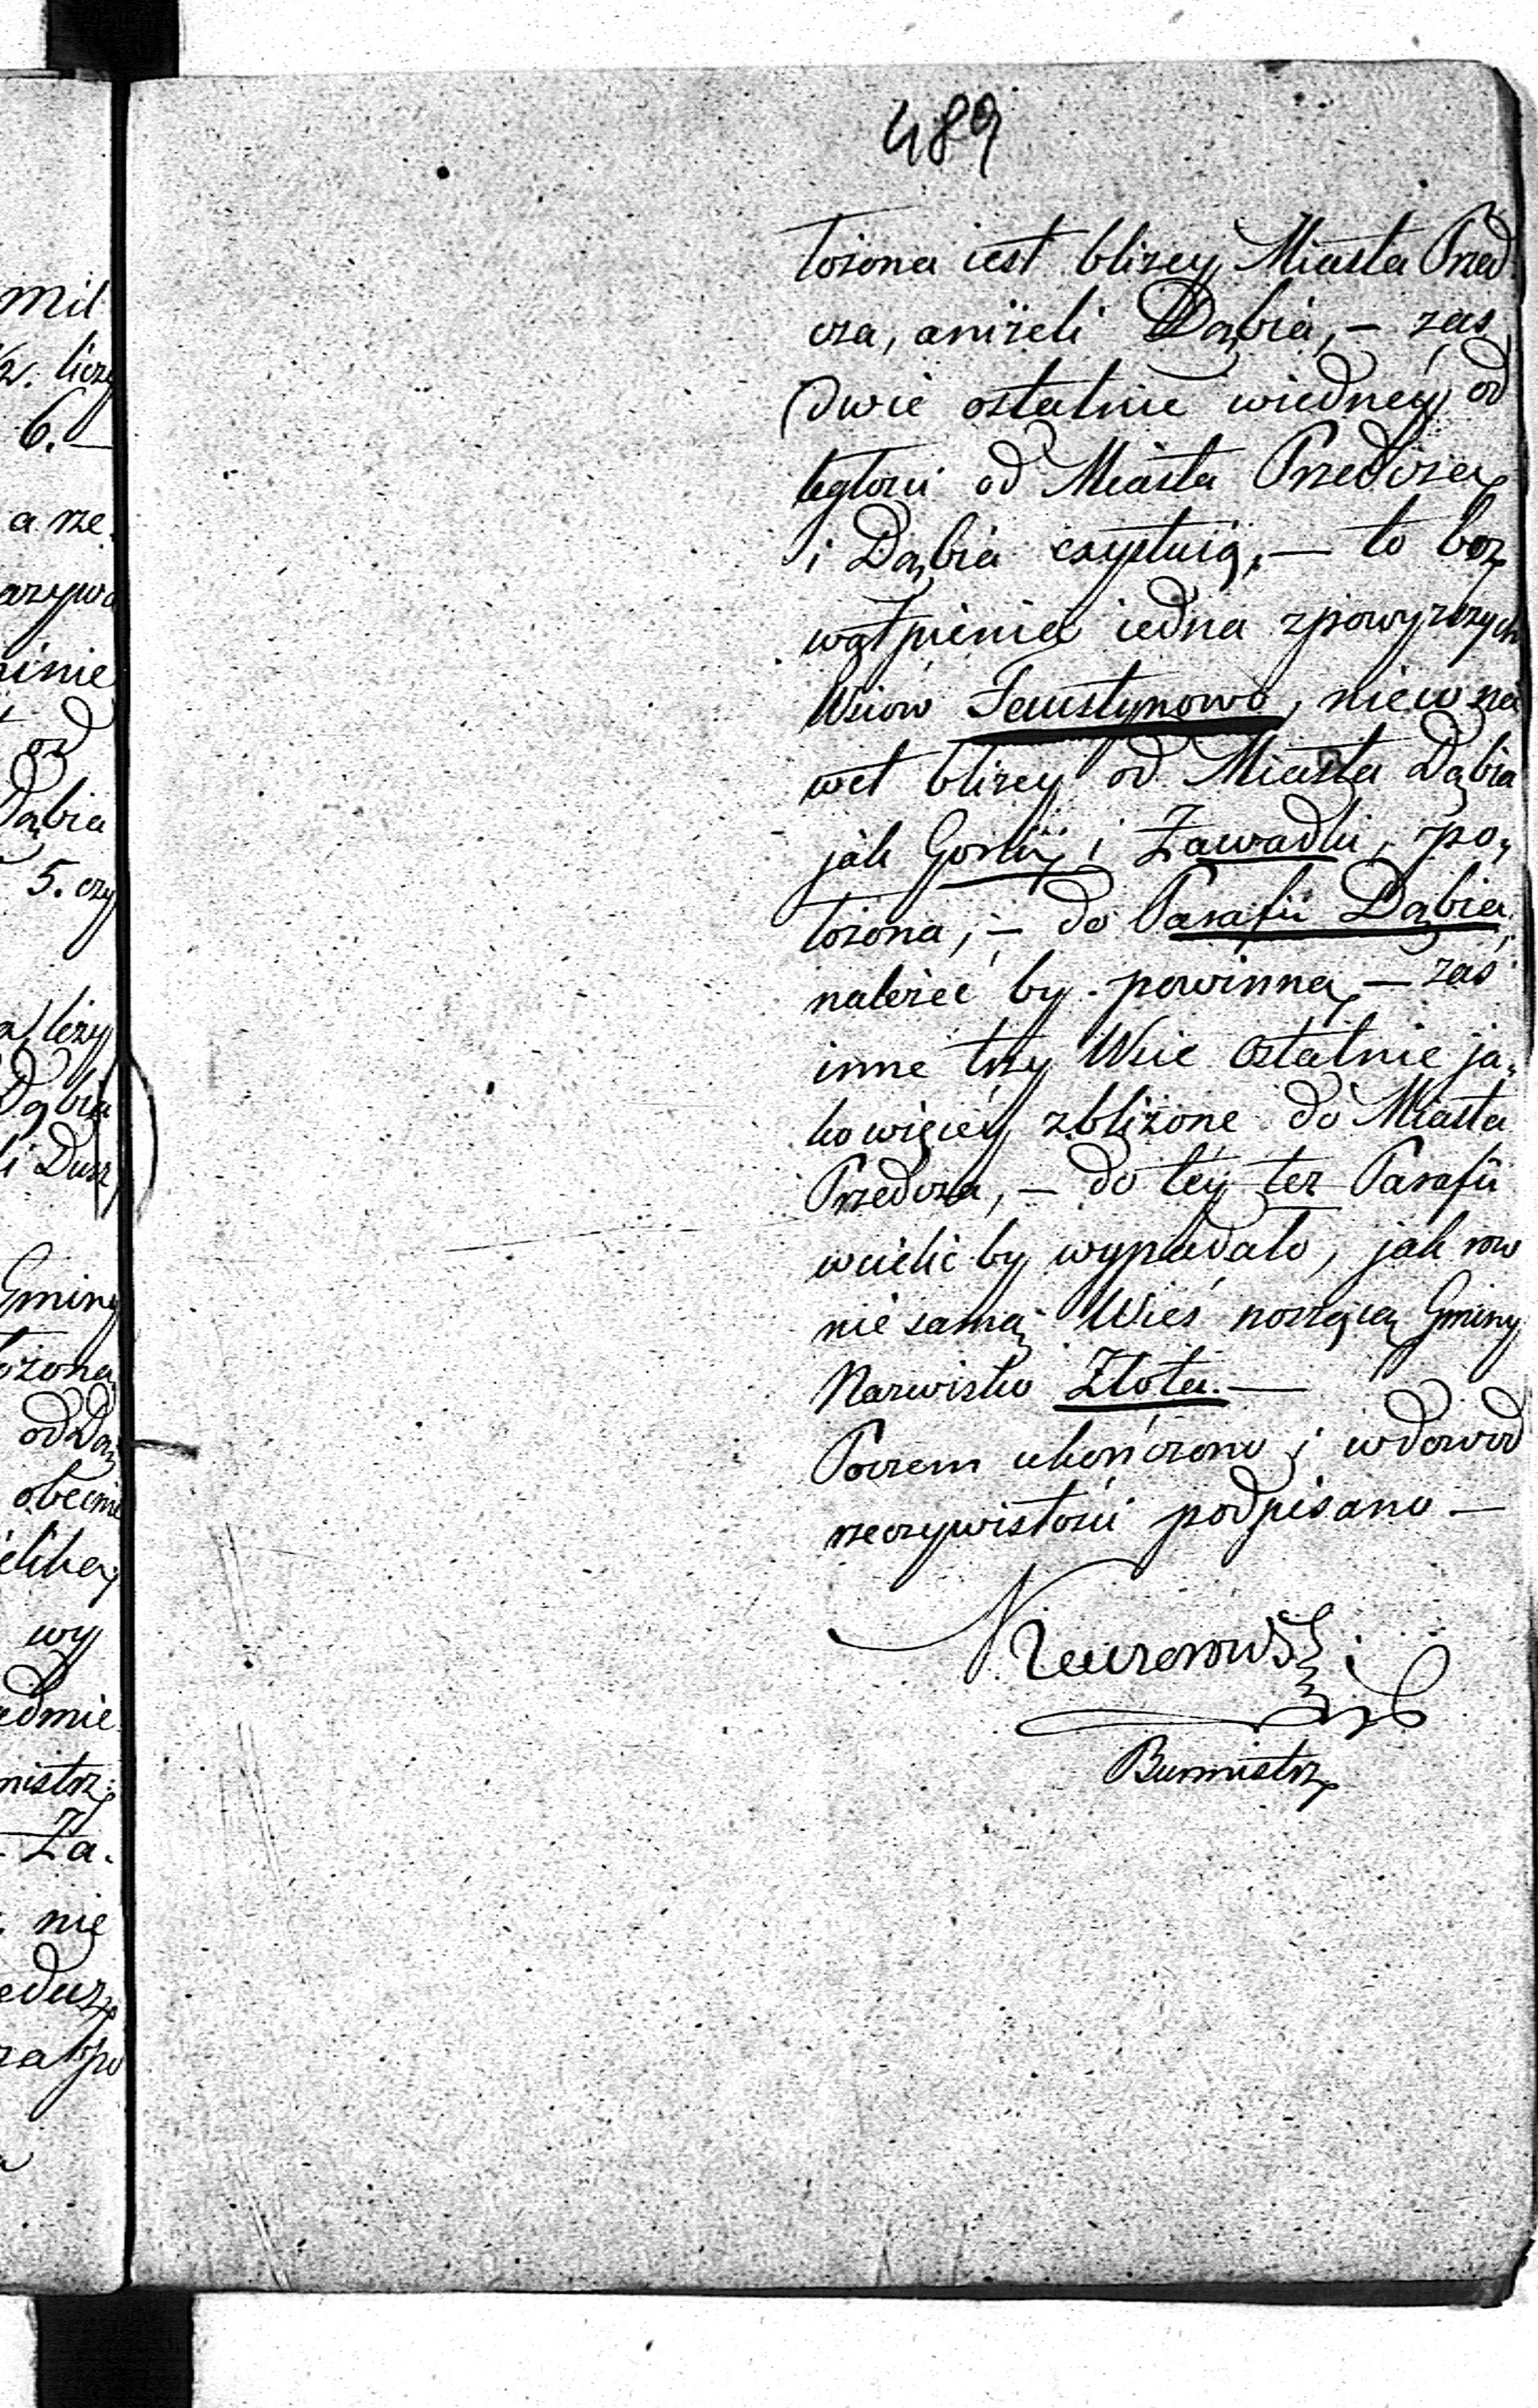 489
łożona iest bliżey Miasta Przed
cza, aniżeli Dąbia, — zaś
dwie ostatnie wiedney od
ległości od Miasta Przedcza
i Dąbia exystuią, — to bez
wątpienia iedna zpowyższych
Wsiow Faustynowo, niew na
wet bliżey od Miasta Dąbia
jak Gorki i Zawadki, po,
łożona, — do Parafii Dąbia,
należeć by powinna, — zaś
inne trzy Wsie ostatnie ja,
ko więcey zbliżone do Miasta
Przedcza, — do tey też Parafii
wcielić by wypadało, jak row
nie samą Wieś noszącą Gminy
Nazwisko Złota. —
Poczem ukończono i wdowod
rzeczywistości podpisano —
Burmistrz
mil
1/2. liczy
6. —
a rze.
od
Dąbia
5. czy
leży
Dąbia
i Dusz
Gminy
łożona
od Dą
obecnie
wy
Za.
nie